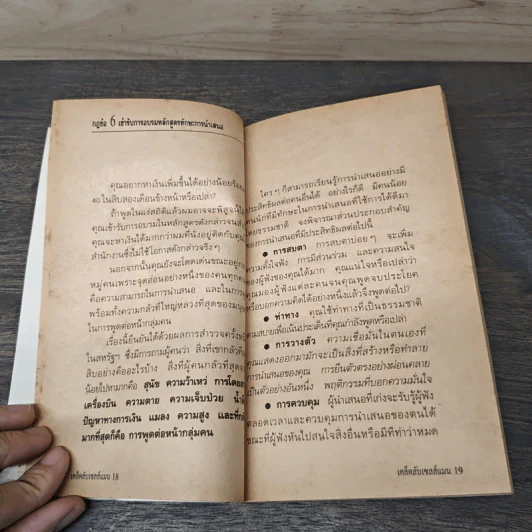 กฎข้อ 6 เข้ารับการอบรมหลักสูตรทักษะการนำเสนอ
คุณอยากหาเงินเพิ่มขึ้นได้อย่างน้อยร้อยละ
40 ในสิบสองเดือนข้างหน้าหรือเปล่า?
ถ้าพูดในแง่สถิติแล้วผมอาจจะพิสูจน์ได้
คุณเข้ารับการอบรมในหลักสูตรดังกล่าวจนจบ
คุณจะหาเงินได้มากกว่าผมที่นั่งอยู่ติดกับคุณ
สำนักงานซึ่งไม่ใช้โอกาสดังกล่าวจริงๆ
นอกจากนั้นคุณยังจะโดดเด่นขณะอยู่กลาง
หมู่คนเพราะจุดอ่อนอย่างหนึ่งของคนทุกคน
คือความสามารถในการนำเสนอ และในการ
พร้อมทั้งความกลัวที่ใหญ่หลวงที่สุดของมนุษย์
ในการพูดต่อหน้ากลุ่มคน
เรื่องนี้ยืนยันได้ด้วยผลการสำรวจครั้ง
ในสหรัฐฯ ซึ่งมีการถามผู้คนว่า สิ่งที่เขากลัวที่สุด
สิบอย่างคืออะไรบ้าง สิ่งที่ผู้คนกลัวที่สุด
น้อยไปหามากคือ สุนัข ความว้าเหว่ การโดยสาร
เครื่องบิน ความตาย ความเจ็บป่วย น้ำ
ปัญหาทางการเงิน แมลง ความสูง และที่กลัว
มากที่สุดก็คือ การพูดต่อหน้ากลุ่มคน
เคล็ดลับเซลส์แมน 18
ใครๆ ก็สามารถเรียนรู้การนำเสนออย่างมี
ประสิทธิผลต่อคนอื่นได้ อย่างไรก็ดี มีคนน้อย
คนนักที่มีทักษะในการนำเสนอที่ใช้การได้ดีมา
โดยธรรมชาติ จงพิจารณาส่วนประกอบสำคัญ
ของการนำเสนอที่มีประสิทธิผลต่อไปนี้
● การสบตา การสบตาบ่อยๆ จะเพิ่ม
ความตั้งใจฟัง การมีส่วนร่วม และความสนใจ
ของผู้ฟังของคุณได้มาก คุณแน่ใจหรือเปล่าว่า
คุณมองผู้ฟังแต่ละคนจนคุณพูดจบประโยค
หรือบอกความคิดได้อย่างหนึ่งแล้วจึงพูดต่อไป?
● ท่าทาง คุณใช้ท่าทางที่เป็นธรรมชาติ
ตามสบายเพื่อเน้นประเด็นที่คุณกำลังพูดหรือเปล่า
● การวางตัว ความเชื่อมั่นในตนเองที่
คุณแสดงออกมามักจะเป็นสิ่งที่สร้างหรือทำลาย
การนำเสนอของคุณ การยืนตัวตรงอย่างผ่อนคลาย
เป็นตัวอย่างอันหนึ่ง พฤติกรรมที่บอกความมั่นใจ
● การควบคุม ผู้นำเสนอที่เก่งจะรับรู้ผู้ฟัง
ตลอดเวลาและควบคุมการนำเสนอของตนได้
ขณะที่ผู้ฟังหันไปสนใจสิ่งอื่นหรือมีทีท่าว่าหมด
เคล็ดลับเซลส์แมน 19